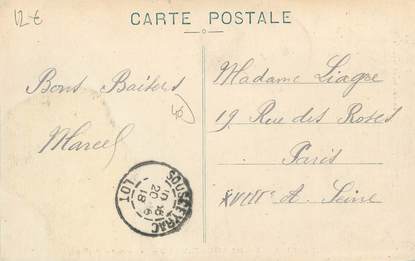 12-€
CARTE POSTALE
Bons Baisers
Marcel
Madame Liagre
19 Rue des Roses
Paris
XVIIIe A. Seine
SOUSCEYRAC
20 - 6
18
LOT